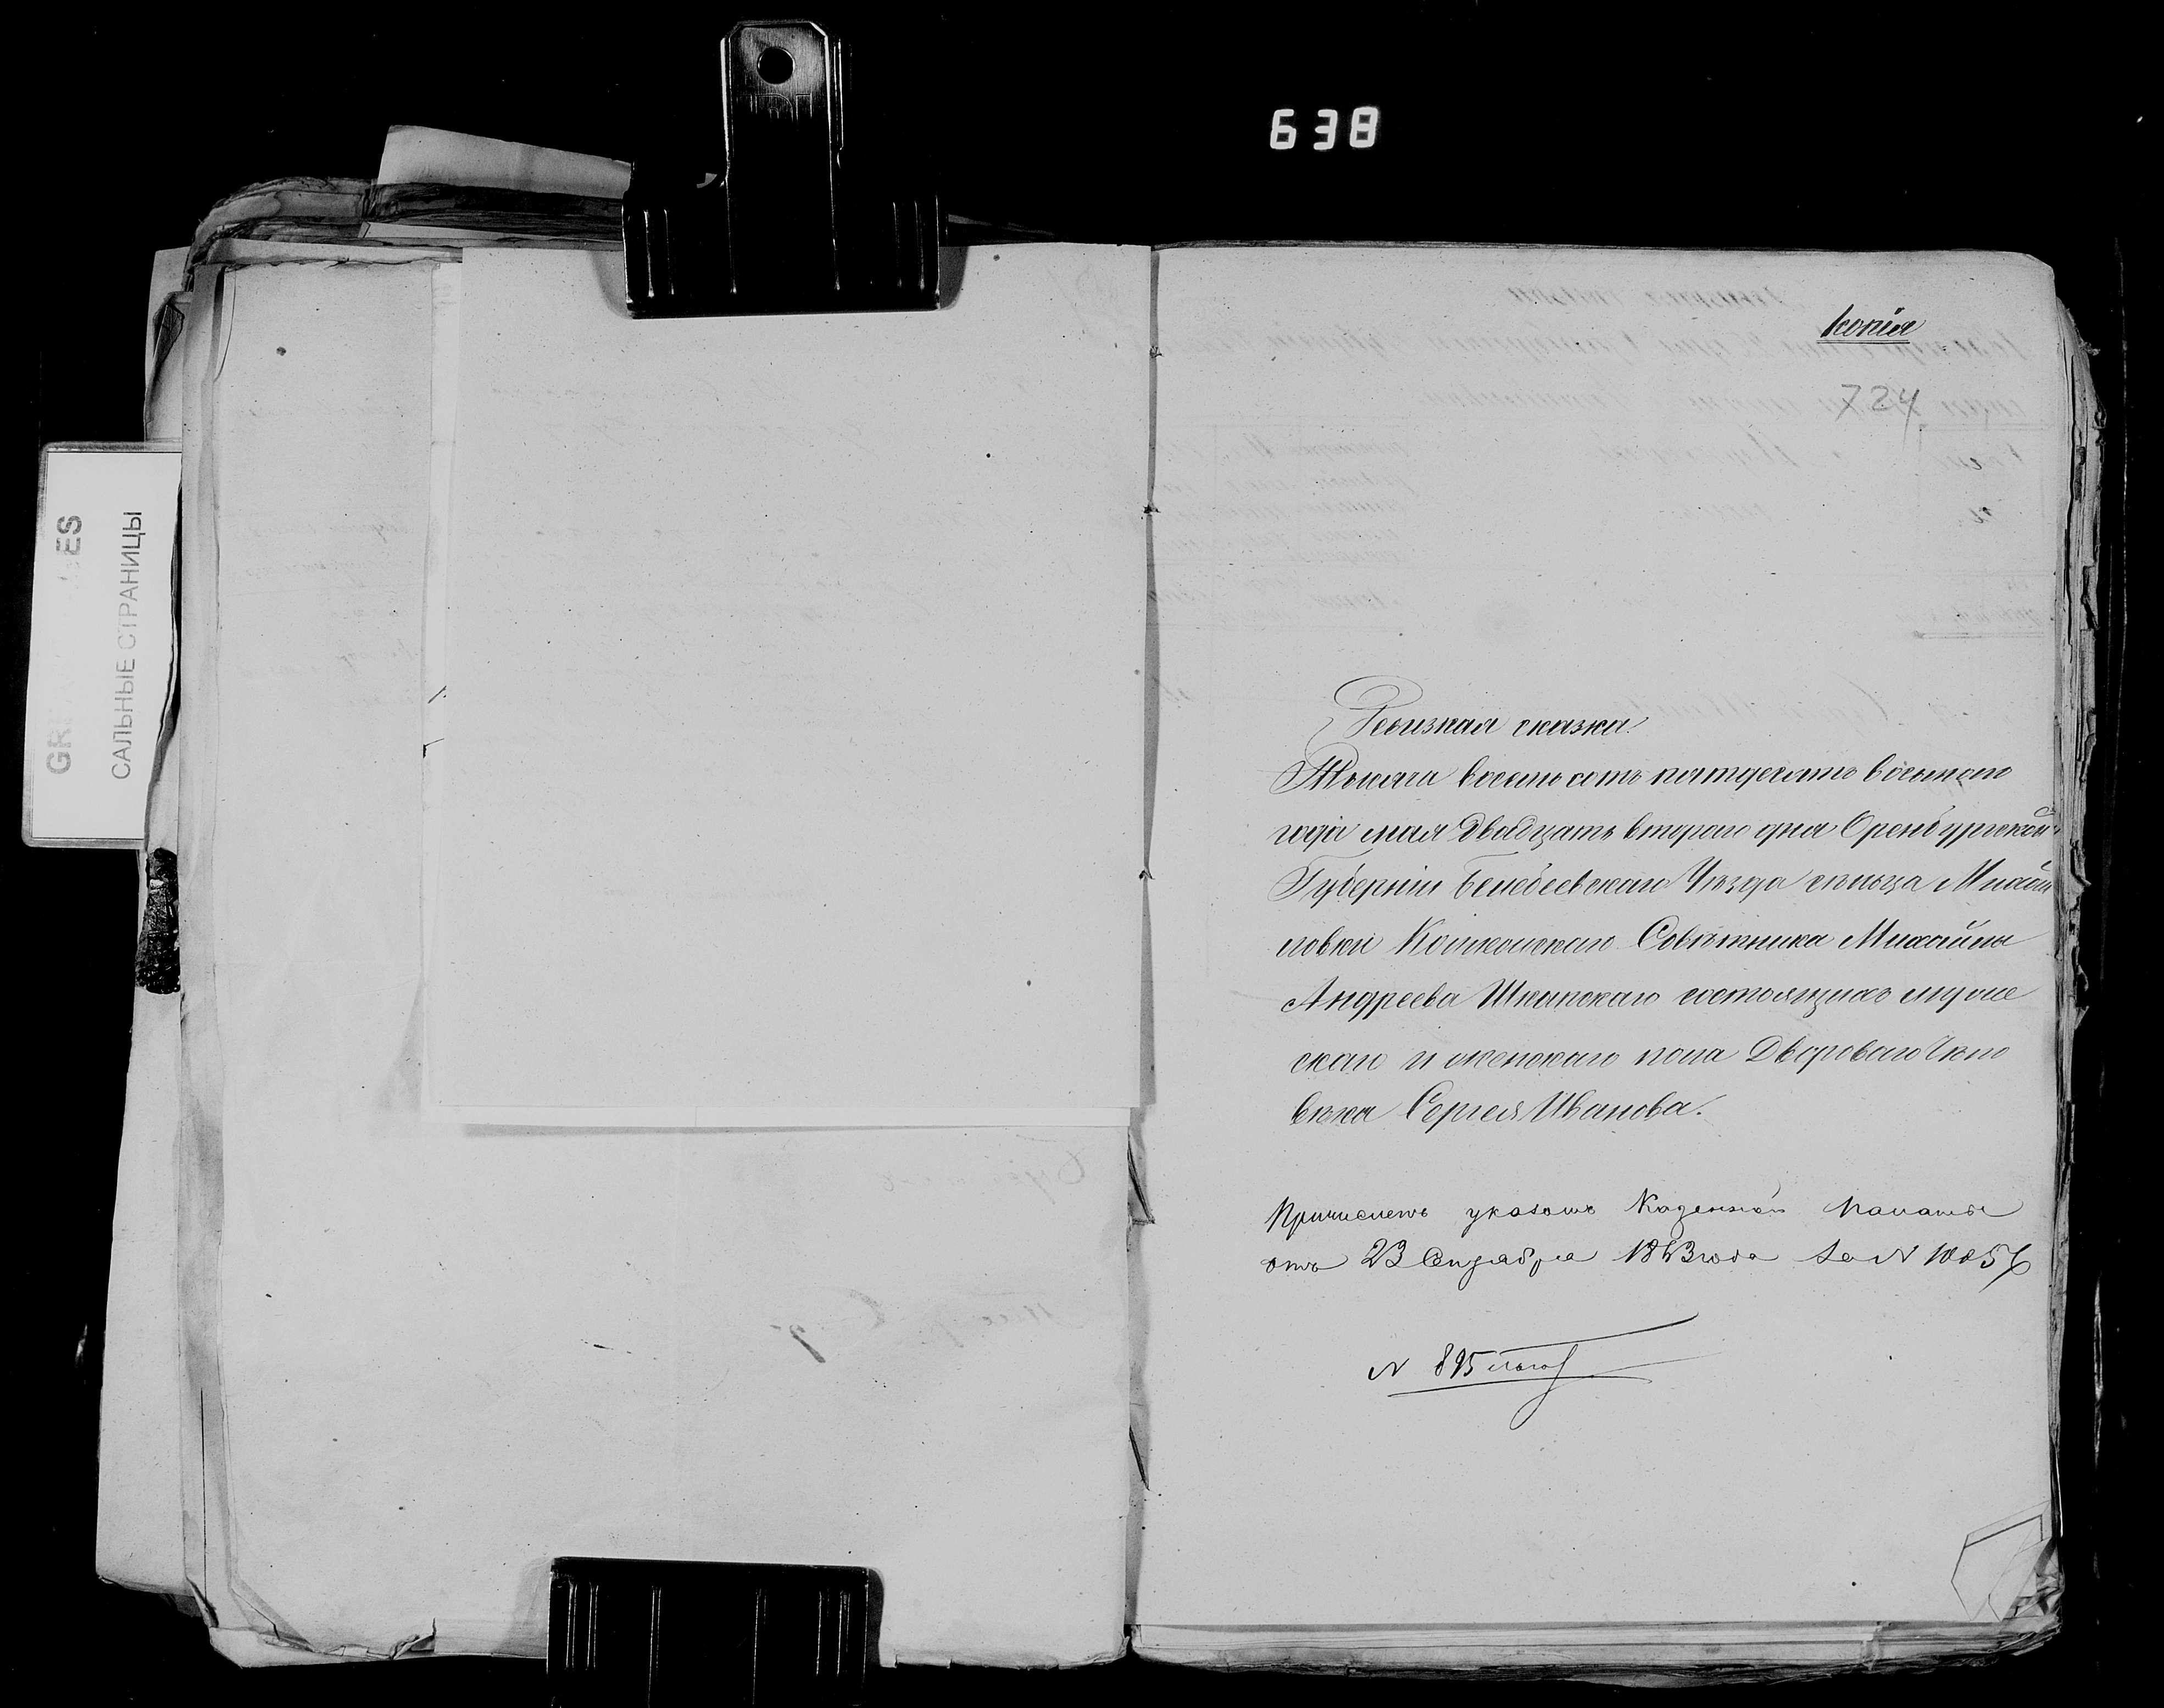 638
GR ES
САЛЬНЫЕ СТРАНИЦЫ
Копія
724
Ревизная сказка.
Тысяча восемьсотъ пятдесятъ восьмого
года мая двадцать второго дня Оренбургской
Губерніи Белебеевскаго Уѣзда сельца Михай
ловки Коллежскаго Совѣтника Михайлы
Андреева Шкапскаго состоящихъ муже
скаго и женскаго пола Двороваго Чело
вѣка Сергея Иванова.
Причисленъ указомъ Казенной Палаты
отъ 23 Сентября 1863 года за N
N 895